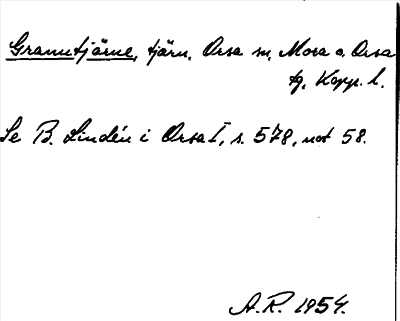 Granutjärne, tjärn. Orsa sn, Mora o. Orsa
tg, Kopp. l.
Se B. Lindén i Orsa I, s. 578, not 58.
A.R. 1954.